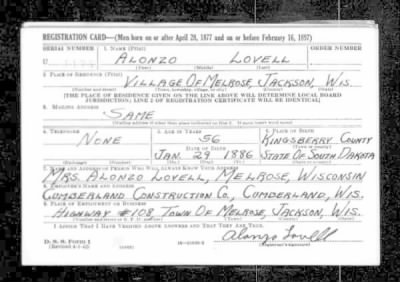 REGISTRATION CARD—(Men born on or after April 28, 1877 and on or before February 16, 1897)
SERIAL NUMBER 1. NAME (Print) ORDER NUMBER
U ALONZO LOVELL
(First) (Middle) (Last)
2. PLACE OF RESIDENCE (Print)
VILLAGE OF MELROSE, JACKSON, WIS.
(Number and street) (Town, township, village, or city) (County) (State)
[THE PLACE OF RESIDENCE GIVEN ON THE LINE ABOVE WILL DETERMINE LOCAL BOARD
JURISDICTION; LINE 2 OF REGISTRATION CERTIFICATE WILL BE IDENTICAL]
3. MAILING ADDRESS
SAME
[Mailing address if other than place indicated on line 2. If same insert word same]
4. TELEPHONE 5. AGE IN YEARS 6. PLACE OF BIRTH
NONE 56 KINGSBERRY COUNTY
DATE OF BIRTH (Town or county)
JAN. 29 1886 STATE OF SOUTH DAKOTA
(Exchange) (Number) (Mo.) (Day) (Yr.) (State or country)
7. NAME AND ADDRESS OF PERSON WHO WILL ALWAYS KNOW YOUR ADDRESS
MRS. ALONZO LOVELL, MELROSE, WISCONSIN
8. EMPLOYER'S NAME AND ADDRESS
CUMBERLAND CONSTRUCTION CO., CUMBERLAND, WIS.
9. PLACE OF EMPLOYMENT OR BUSINESS
HIGHWAY #108, TOWN OF MELROSE, JACKSON, WIS.
(Number and street or R. F. D. number) (Town) (County) (State)
I AFFIRM THAT I HAVE VERIFIED ABOVE ANSWERS AND THAT THEY ARE TRUE.
D. S. S. Form 1
(Revised 4-1-42) (over) Alonzo Lovell